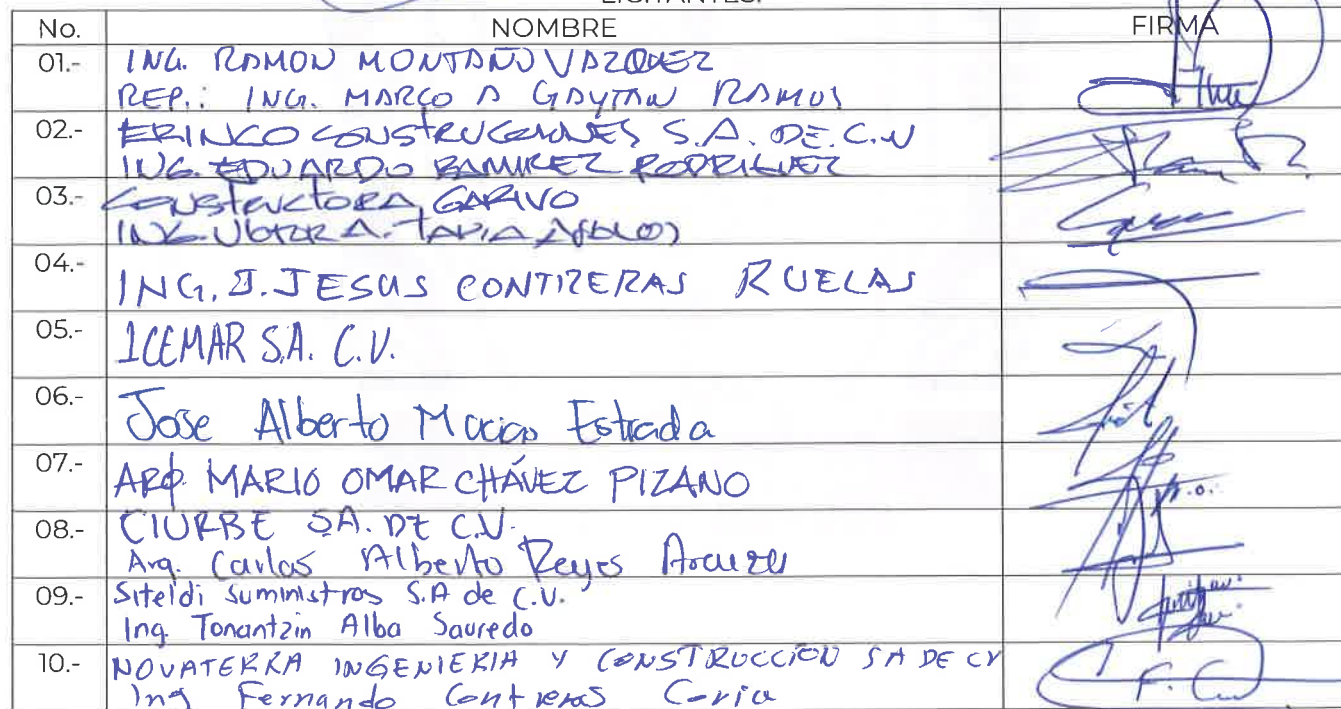 LICITANTES.
No. NOMBRE FIRMA
01.- ING. RAMON MONTAÑO VAZQUEZ
REP.: ING. MARCO A GAYTAN RAMOS
02.- ERINCO CONSTRUCCIONES S.A. DE.C.V
ING. EDUARDO RAMIREZ RODRIGUEZ
03.- CONSTRUCTORA GARIVO
ING. A. TAPIA
04.- ING. J. JESUS CONTRERAS RUELAS
05.- ICEMAR S.A. C.V.
06.- Jose Alberto Macias Estrada
07.- ARQ. MARIO OMAR CHÁVEZ PIZANO
08.- CIURBE SA. DE C.V.
Arq. Carlos Alberto Reyes
09.- Siteldi suministros S.A de C.V.
Ing. Tonantzin Alba Sauredo
10.- NOVATERRA INGENIERIA Y CONSTRUCCION SA DE CV
Ing Fernando Contreras Coria
F. C